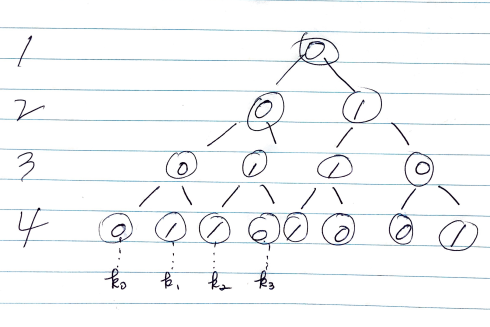 1 0
2 0 1
3 0 1 1 0
4 0 1 1 0 1 0 0 1
k₀ k₁ k₂ k₃